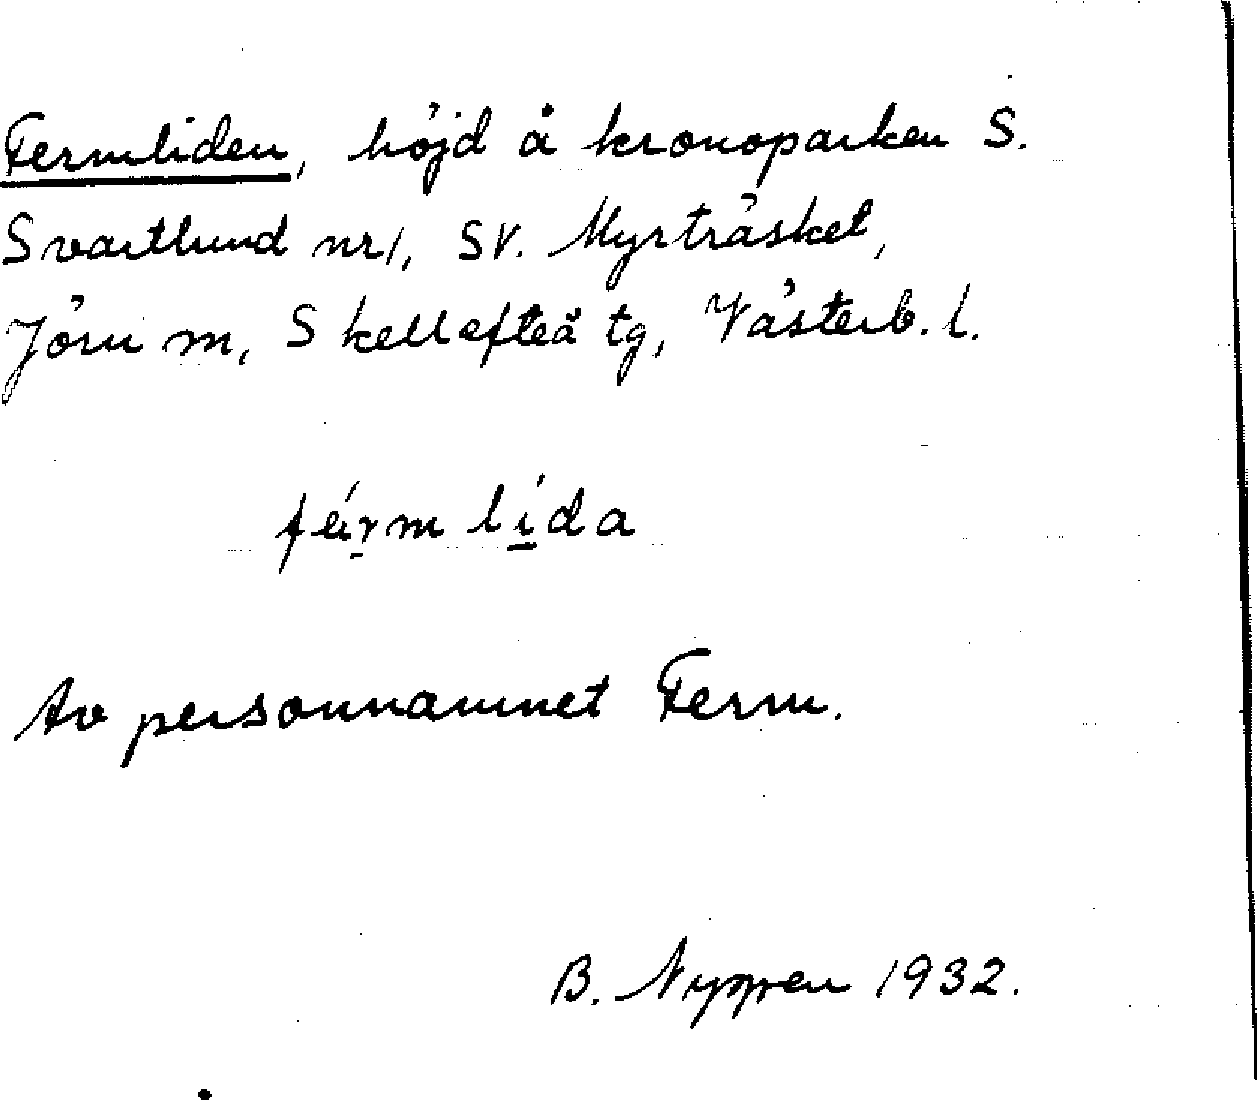 Fermliden, höjd å kronoparken S.
Svartlund nr 1, SV. Myrträsket,
Jörn m, Skellefteå tg, Västerb. l.
färm lída
Av personnamnet Ferm.
B. 1932.